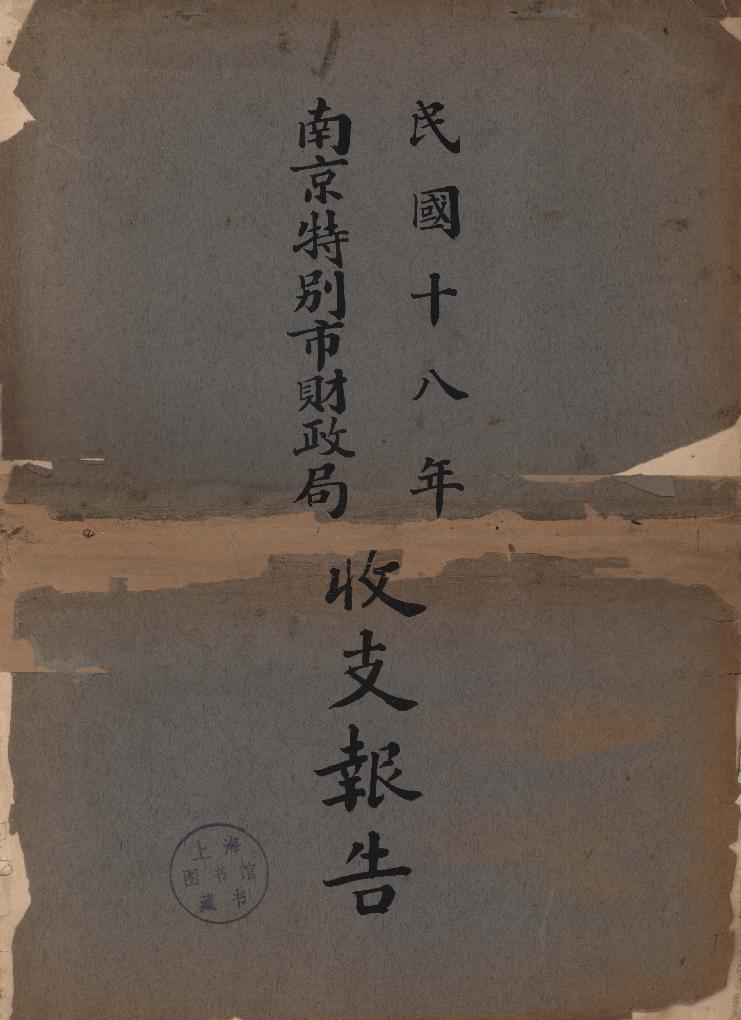 民國十八年
南京特別市財政局
收支報告
上海
图书馆
藏书